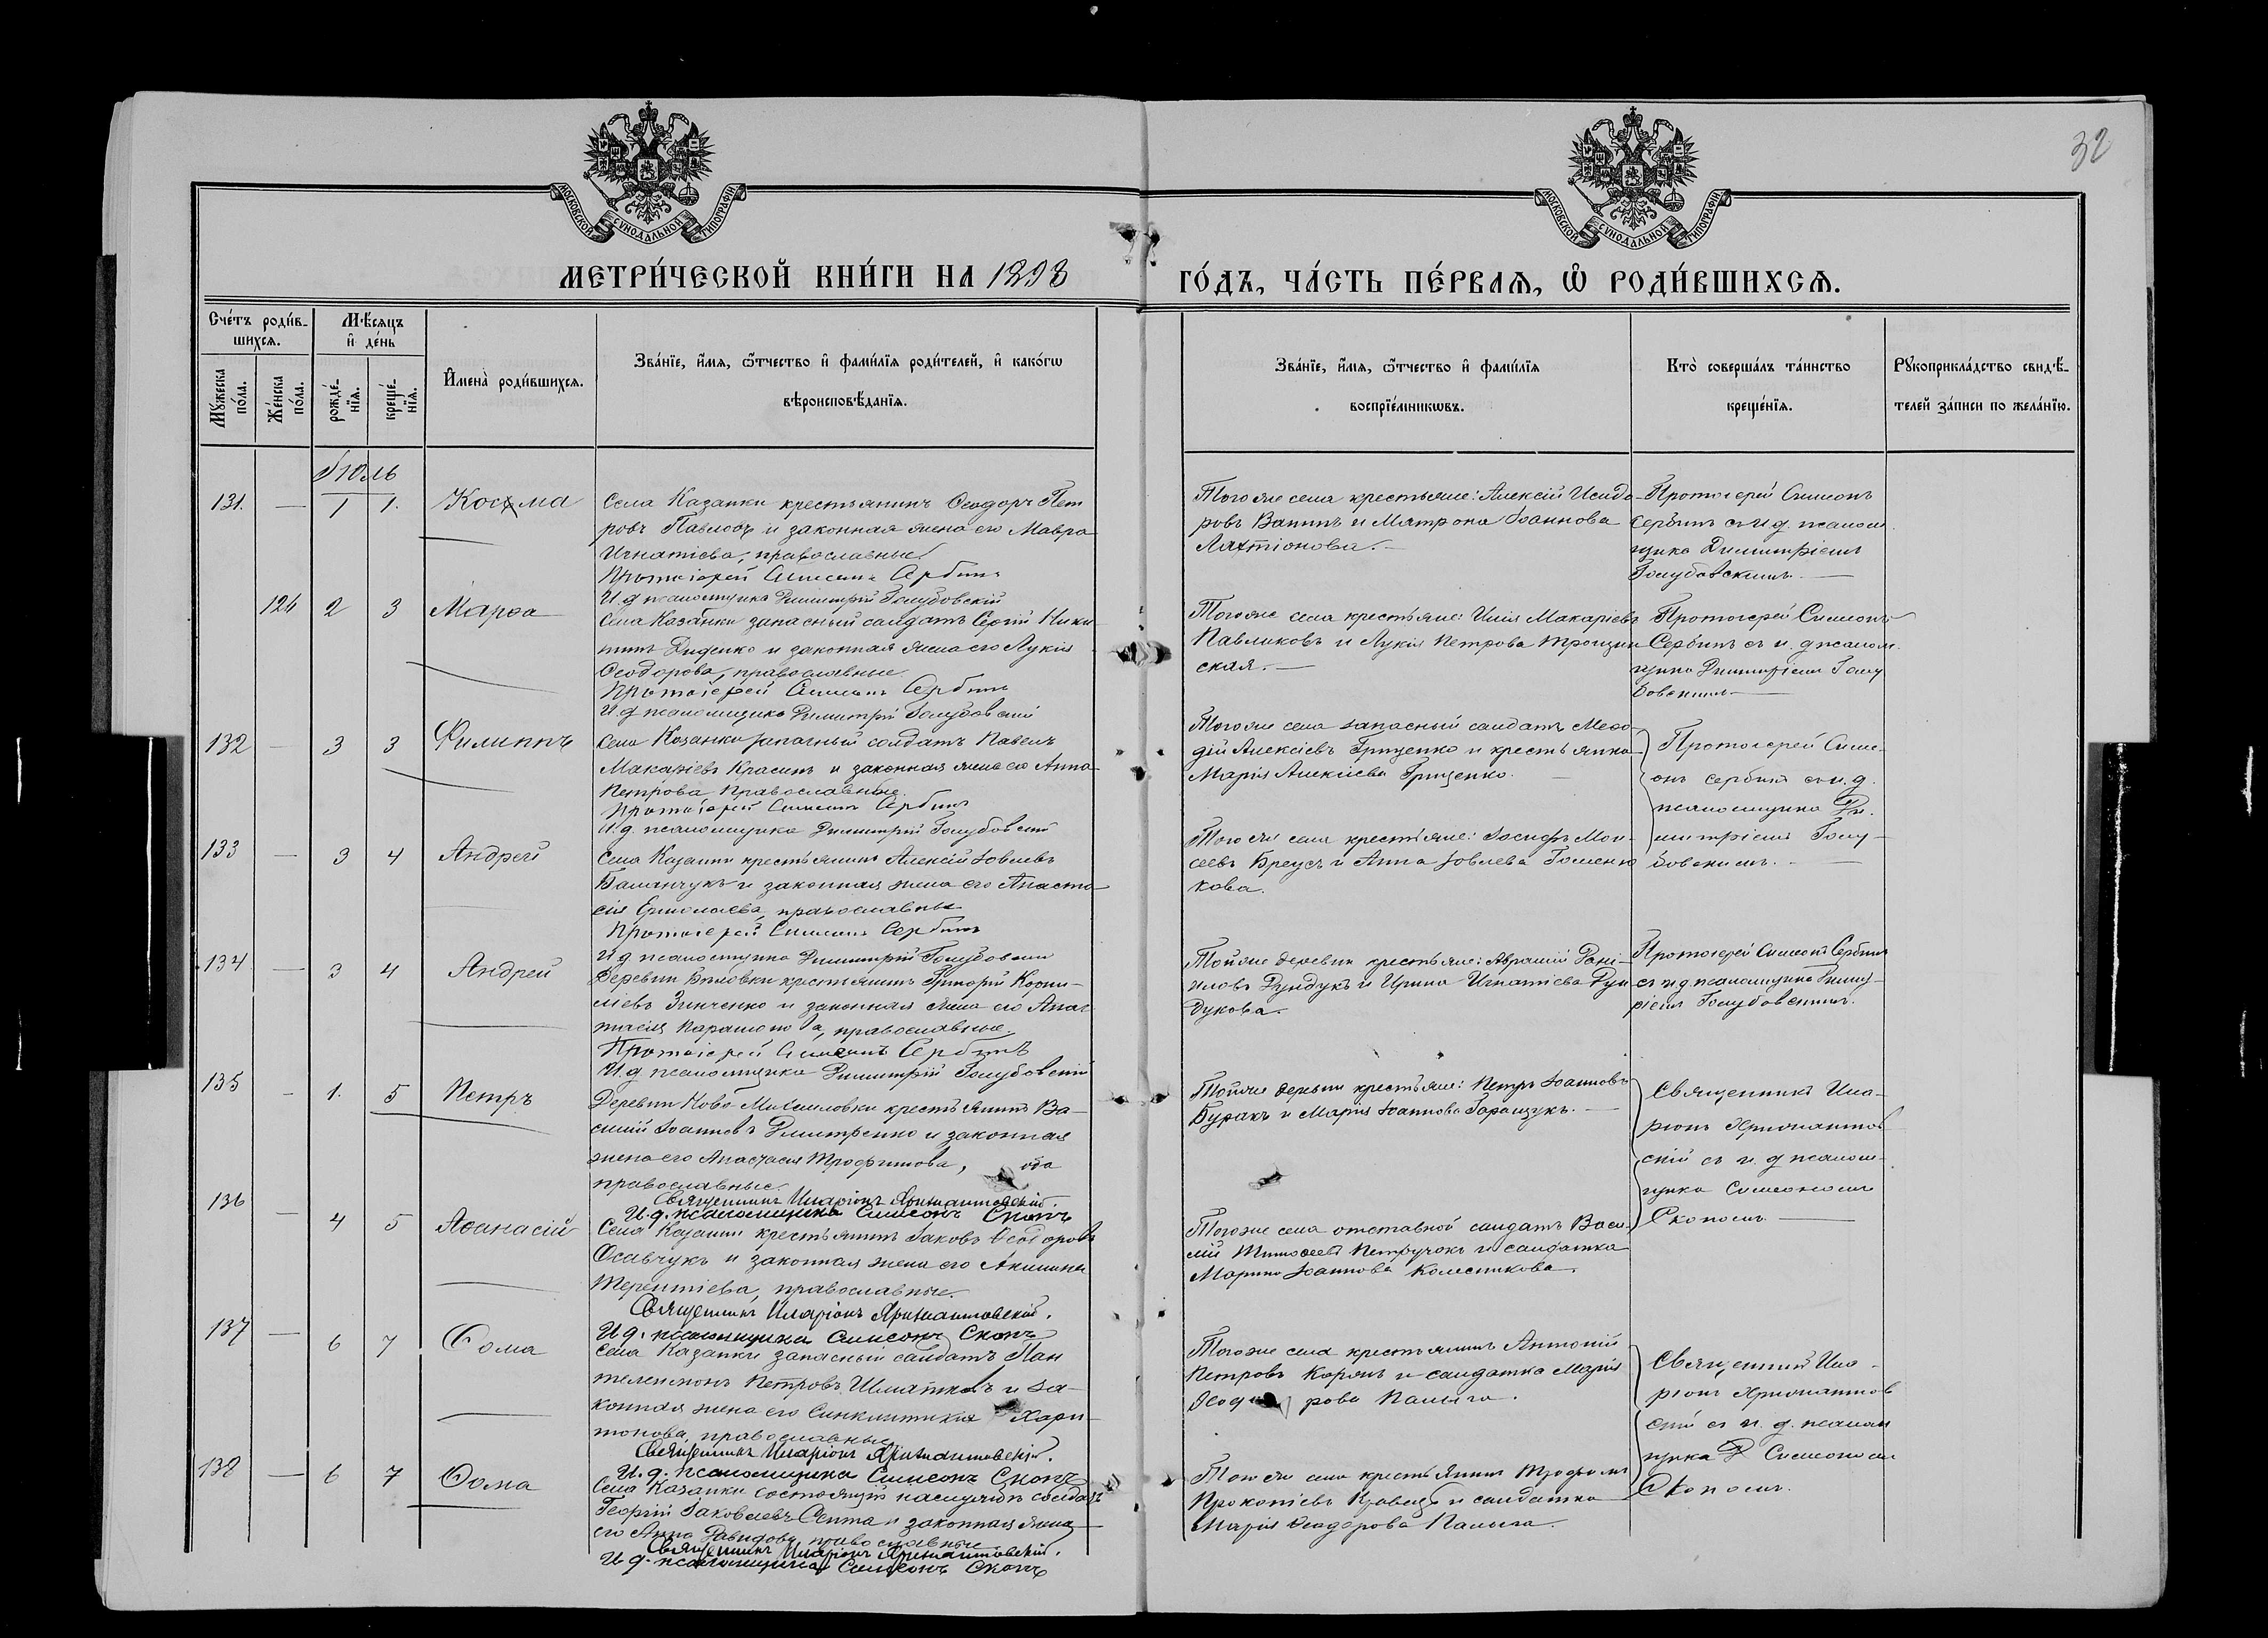 32
МОСКОВСКОЙ СУНОДАЛЬНОЙ ТИПОГРАФІИ
МОСКОВСКОЙ СУНОДАЛЬНОЙ ТИПОГРАФІИ
МЕТРИ́ЧЕСКОЙ КНИ́ГИ НА 1898
ГО́ДЪ, ЧА́СТЬ ПЕ́РВАѦ, Ѽ РОДИ́ВШИХСѦ.
Сче́тъ роди́в-
шихсѧ.
Мꙋ́жеска по́ла.
Же́нска по́ла.
Мѣ́сѧцъ
и҆ де́нь
рожде́-нїѧ.
креще́-нїѧ.
И҆мена̀ роди́вшихсѧ.
Зва́нїе, и҆́мѧ, ѻ҆́тчество и҆ фами́лїѧ роди́телей, и҆ како́гѡ
вѣроисповѣ́данїѧ.
Зва́нїе, и҆́мѧ, ѻ҆́тчество и҆ фами́лїѧ
воспрїе́мникѡвъ.
Кто̀ соверша́лъ та́инство
креще́нїѧ.
Рꙋкоприкла́дство свидѣ́-
телей за́писи по жела́нїю.
Іюль
131. — 1 1. Косма
Села Казанки крестьянинъ Ѳеодоръ Пет
ровъ Павловъ и законная жена его Мавра
Игнатіева, православные.
Протоіерей Симеонъ Сербинъ
И.д псаломщика Димитрій Голубовскій
Того же села крестьяне: Алексій Исидо-
ровъ Ванинъ и Матрона Іоаннова
Лахтіонова. —
Протоіерей Симеонъ
Сербинъ съ и.д. псалом
щика Димитріемъ
Голубовскимъ. —
124 2 3 Марѳа
Села Казанки запасный солдатъ Сергій Ники
тинъ Диденко и законная жена его Лукія
Ѳеодорова, православные.
Протоіерей Симеонъ Сербинъ
И.д псаломщика Димитрій Голубовскій
Того же села крестьяне: Илія Макаріевъ
Павликовъ и Лукія Петрова Троцин
ская. —
Протоіерей Симеонъ
Сербинъ съ и. д псалом
щика Димитріемъ Голу
бовскимъ —
132 — 3 3 Филиппъ
Села Казанки запасный солдатъ Павелъ
Макаріевъ Красинъ и законная жена его Анна
Петрова православные.
Протоіерей Симеонъ Сербинъ
И.д. псаломщика Димитрій Голубовскій
Того же села запасный солдатъ Меѳо-
дій Алексіевъ Гриценко и крестьянка
Марія Алексіева Гриценко. —
Протоіерей Симе-
онъ Сербинъ съ и.д.
псаломщика Ди-
митріемъ Голу-
бовскимъ. —
133 — 3 4 Андрей
Села Казанки крестьянинъ Алексій Іовлевъ
Баланчукъ и законная жена его Анаста
сія Ермолаева, православные
Протоіерей Симеонъ Сербинъ
И.д псаломщика Димитрій Голубовскій
Того же села крестьяне: Іосифъ Мои-
сеевъ Бреусъ и Анна Іовлева Гоменю
кова.
134 — 3 4 Андрей
Деревни Бѣловки крестьянинъ Григорій Корни-
ліевъ Зинченко и законная жена его Анас
тасія Парамонова, православные.
Протоіерей Симеонъ Сербинъ
И.д псаломщика Димитрій Голубовскій
Той же деревни крестьяне: Аврамій Дані-
иловъ Дундукъ и Ирина Игнатіева Дун
дукова.
Протоіерей Симеонъ Сербинъ
съ и.д. псаломщика Димит-
ріемъ Голубовскимъ.
135 - 1. 5 Петръ
Деревни Ново-Михаиловки крестьянинъ Ва-
силій Іоанновъ Дмитренко и законная
жена его Анастасія Трофимова, оба
православные.
Священникъ Иларіонъ
И.д. псаломщика Симеонъ Скопъ
Той же деревни крестьяне: Петръ Іоанновъ
Буракъ и Марія Іоаннова Горащукъ. —
Священникъ Ила-
ріонъ
скій съ и. д псалом-
щика Симеономъ
Скопомъ —
136 — 4 5 Аѳанасій
Села Казанки крестьянинъ Іаковъ Ѳеодоровъ
Осавчукъ и законная жена его Акилина
Терентіева, православные.
Священникъ Иларіонъ
И.д. псаломщика Симеонъ Скопъ
Того же села отставной солдатъ Васи-
лій Тимоѳеевъ Петручокъ и солдатка
Марина Іоаннова Колесникова.
137 — 6 7 Ѳома
Села Казанки запасный солдатъ Пан
телеимонъ Петровъ Шматковъ и за-
конная жена его Синклитикія Хари-
тонова, православные
Священникъ Иларіонъ
И.д. псаломщика Симеонъ Скопъ
Того же села крестьянинъ Антоній
Петровъ Корякъ и солдатка Марія
Ѳеодорова Палыга.
Священникъ Ила-
ріонъ
скій съ и. д. псалом
щика Симеономъ
Скопомъ.
138 — 6 7 Ѳома
Села Казанки состоящій на службѣ солдатъ
Георгій Іаковлевъ Септа и законная жена
его Анна Давидова, православные
Священникъ Иларіонъ
И.д. псаломщика Симеонъ Скопъ
Того же села крестьянинъ Трофимъ
Прокопіевъ Кравецъ и солдатка
Марія Ѳеодорова Палыга.